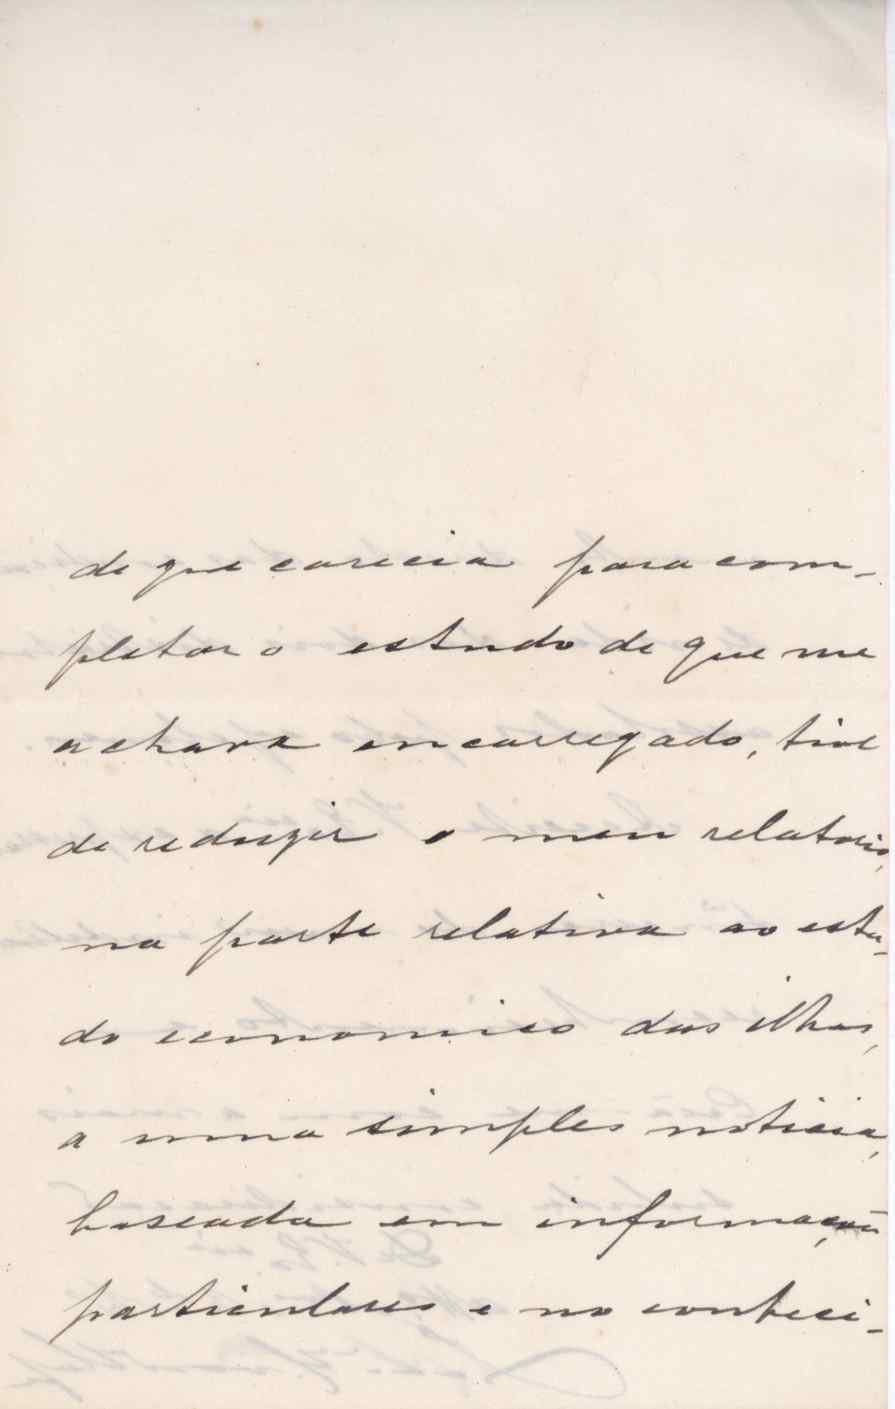 de que carecia para com-
pletar o estudo de que me
achava encarregado, tive
de reduzir o meu relatorio,
na parte relativa ao estu-
do economico das ilhas,
a uma simples noticia,
baseada em informações
particulares e no conheci-